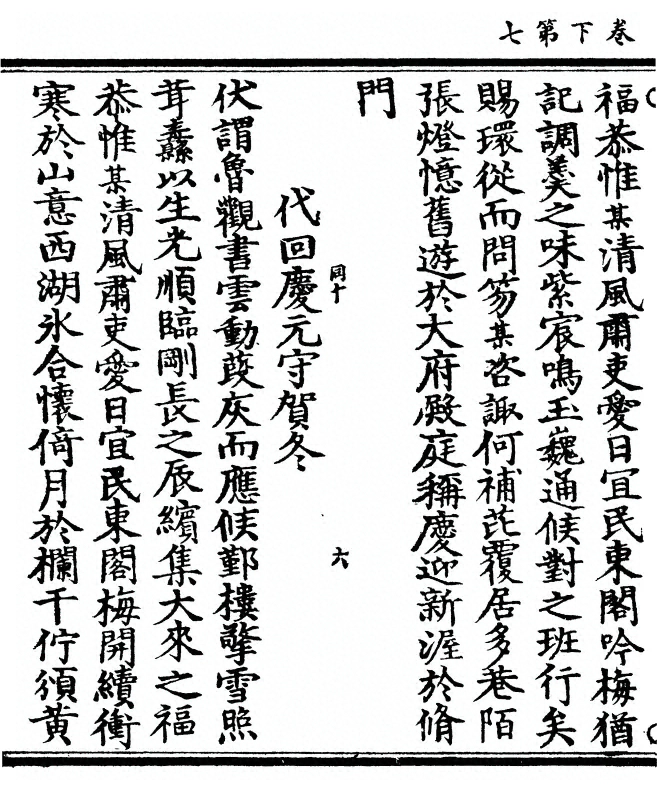 卷下第七
福恭惟某清風肅吏愛日宜民東閣吟梅猶
記調羹之味紫宸鳴玉巍通候對之班行矣
賜環從而問笏某咨諏何補芘覆居多巷陌
張燈憶舊遊於大府殿庭稱慶迎新渥於脩
門
同十
六
代回慶元守賀冬
伏謂魯觀書雲動葭灰而應候鄞樓擎雪照
茸纛以生光順臨剛長之辰繽集大來之福
恭惟某清風肅吏愛日宜民東閣梅開續衝
寒於山意西湖氷合懷倚月於欄干佇頒黃